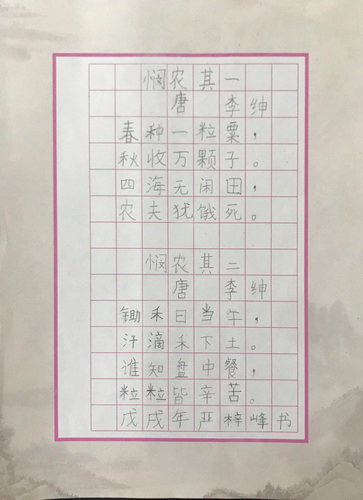 悯农其一
唐 李绅
春种一粒粟，
秋收万颗子。
四海无闲田，
农夫犹饿死。
悯农其二
唐 李绅
锄禾日当午，
汗滴禾下土。
谁知盘中餐，
粒粒皆辛苦。
戊戌年严梓峰书